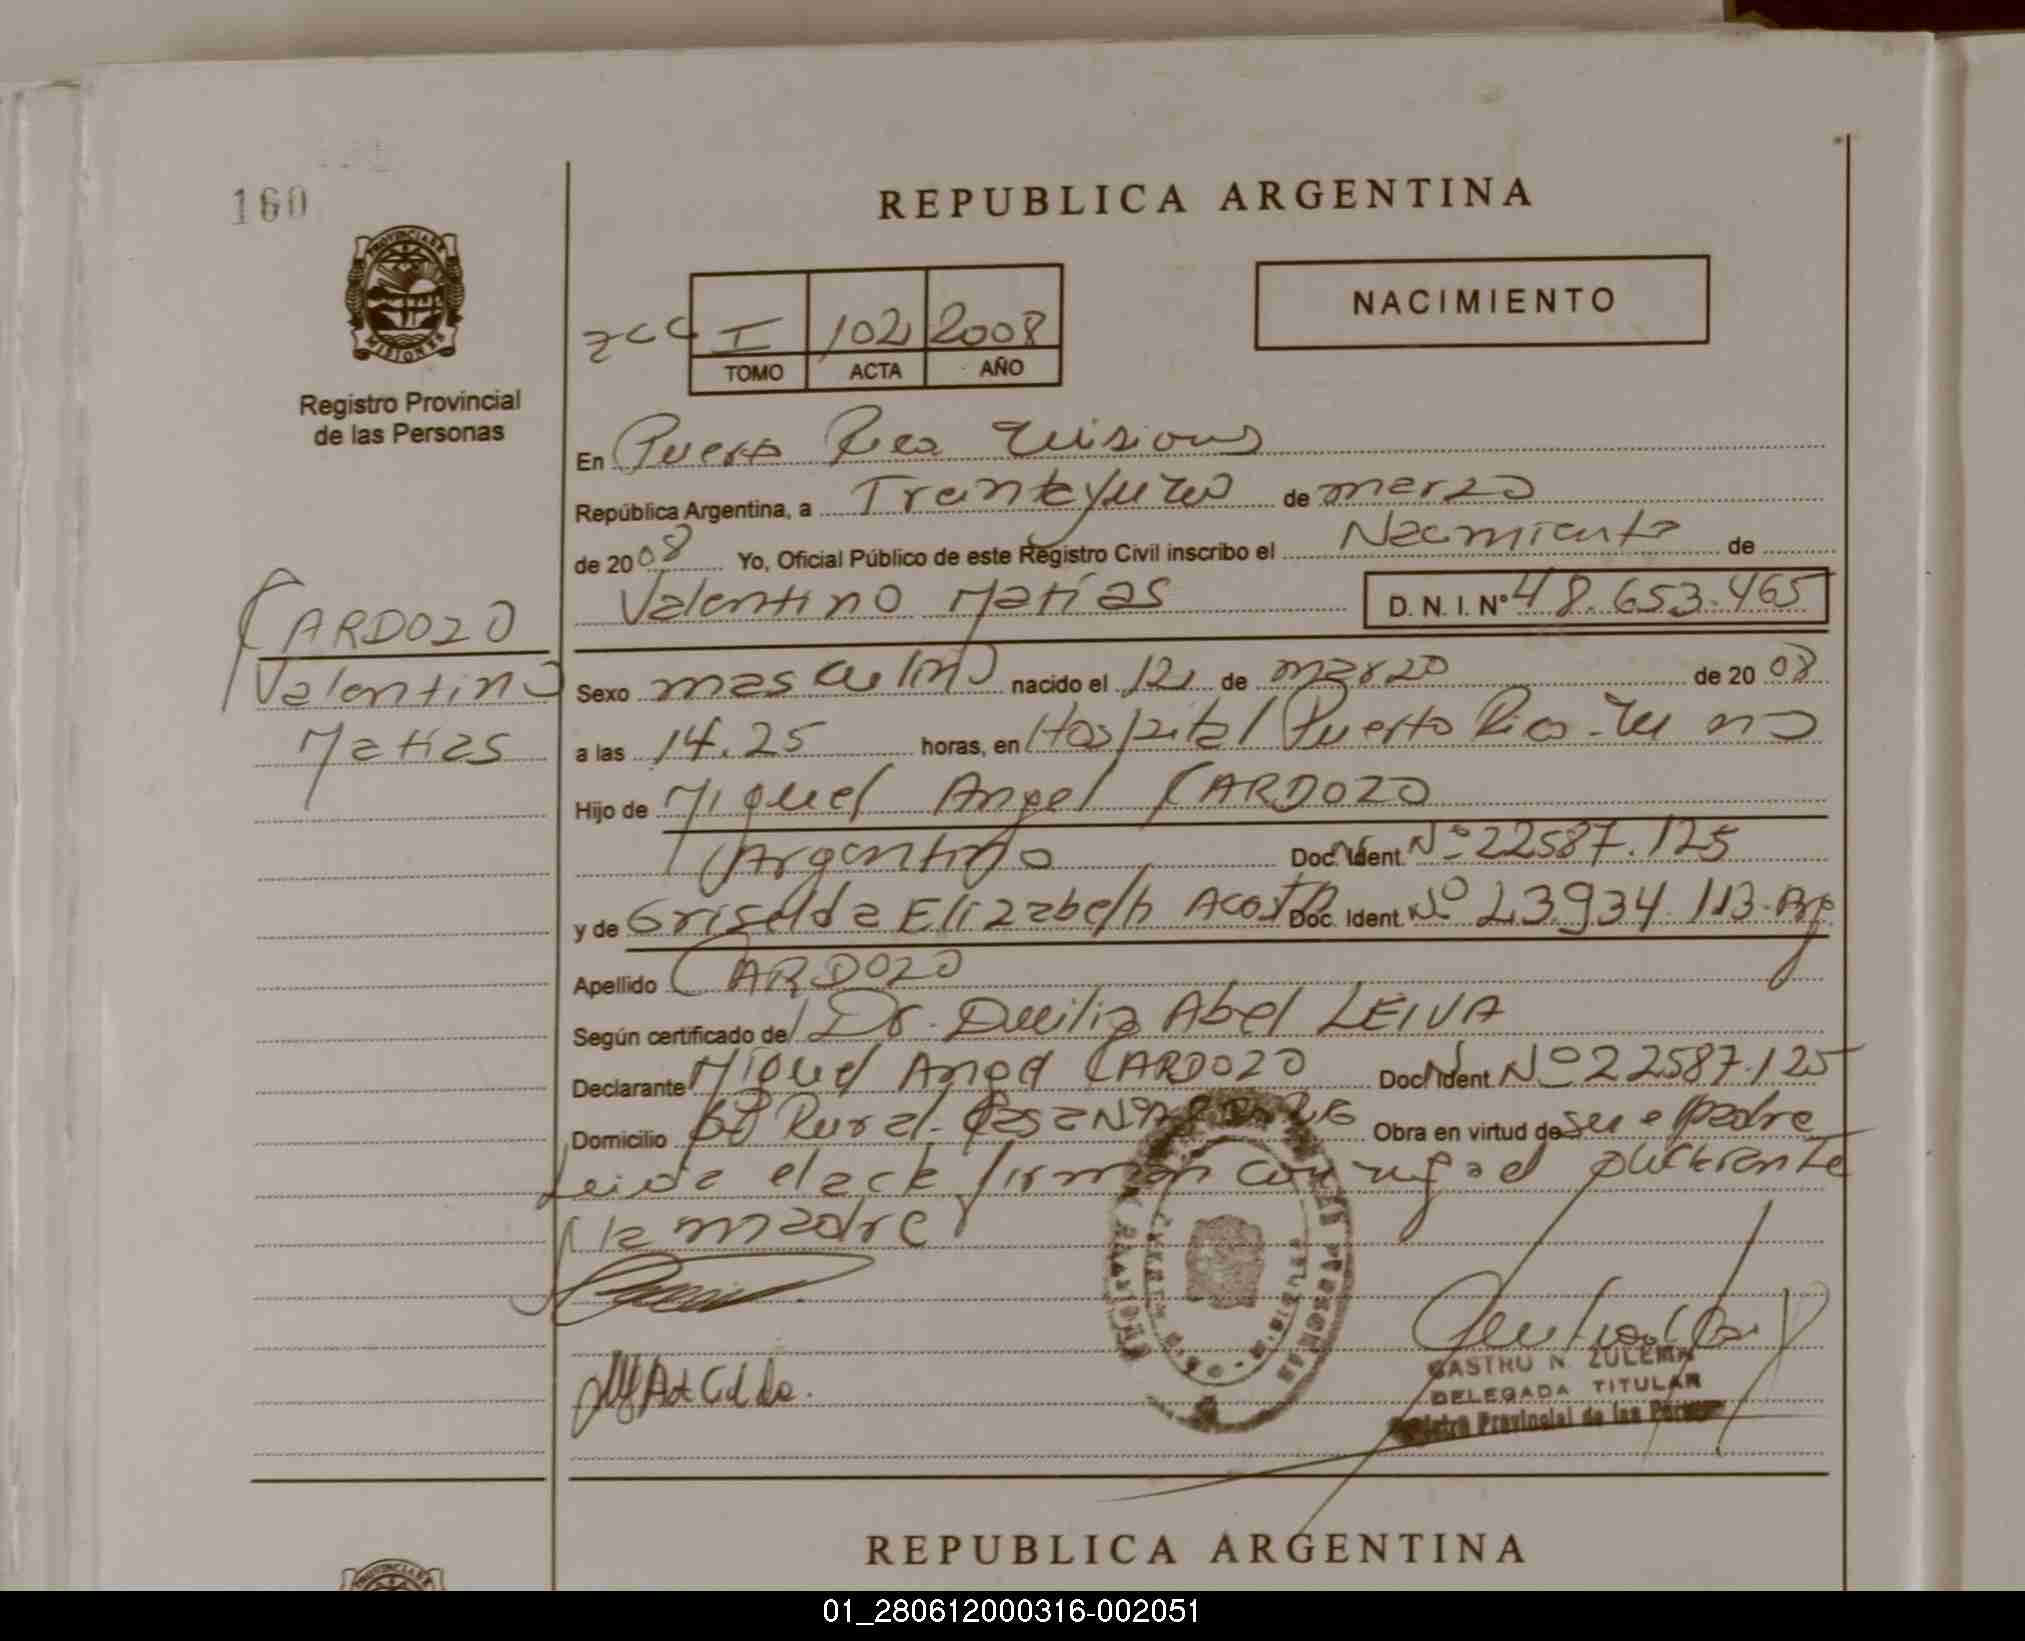 160
REPUBLICA ARGENTINA
PROVINCIA DE
MISIONES
Registro Provincial
de las Personas
I 102 2008
TOMO ACTA AÑO
NACIMIENTO
En Puerto Rico Misiones
República Argentina, a Treinta y uno de marzo
de 2008 Yo, Oficial Público de este Registro Civil inscribo el Nacimiento de
Valentino Matías D. N. I. Nº 48.653.465
CARDOZO
Valentino
Matías
Sexo masculino nacido el 12 de marzo de 2008
a las 14.25 horas, en Hospital Puerto Rico
Hijo de Miguel Angel CARDOZO
Argentino Doc. Ident. Nº 22587.125
y de Griselda Elizabeth Acosta Doc. Ident. Nº 23934.113
Apellido CARDOZO
Según certificado del Dr. Duilio Abel LEIVA
Declarante Miguel Angel CARDOZO Doc. Ident. Nº 22587.125
Domicilio Rural. Casa Nº Obra en virtud de padre
Leida el acta firman el declarante
la madre
CASTRO N. ZULEMA
DELEGADA TITULAR
Registro Provincial de las Personas
REPUBLICA ARGENTINA
PROVINCIA DE
01_280612000316-002051